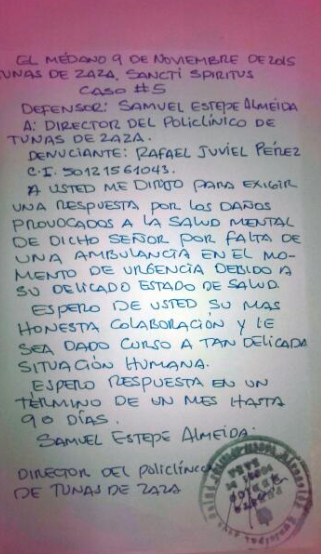 EL MÉDANO 9 DE NOVIEMBRE DE 2015
TUNAS DE ZAZA, SANCTI SPIRITUS
CASO #5
DEFENSOR: SAMUEL ESTEPE ALMEIDA
A: DIRECTOR DEL POLICLÍNICO DE
TUNAS DE ZAZA.
DENUCIANTE: RAFAEL JUVIEL PÉREZ
C.I. 50121561043.
A USTED ME DIRIJO PARA EXIGIR
UNA RESPUESTA POR LOS DAÑOS
PROVOCADOS A LA SALUD MENTAL
DE DICHO SEÑOR POR FALTA DE
UNA AMBULANCIA EN EL MO-
MENTO DE URGENCIA DEBIDO A
SU DELICADO ESTADO DE SALUD.
ESPERO DE USTED SU MAS
HONESTA COLABORACIÓN Y LE
SEA DADO CURSO A TAN DELICADA
SITUACIÓN HUMANA.
ESPERO RESPUESTA EN UN
TÉRMINO DE UN MES HASTA
90 DÍAS.
SAMUEL ESTEPE ALMEIDA.
DIRECTOR DEL POLICLÍNICO
DE TUNAS DE ZAZA